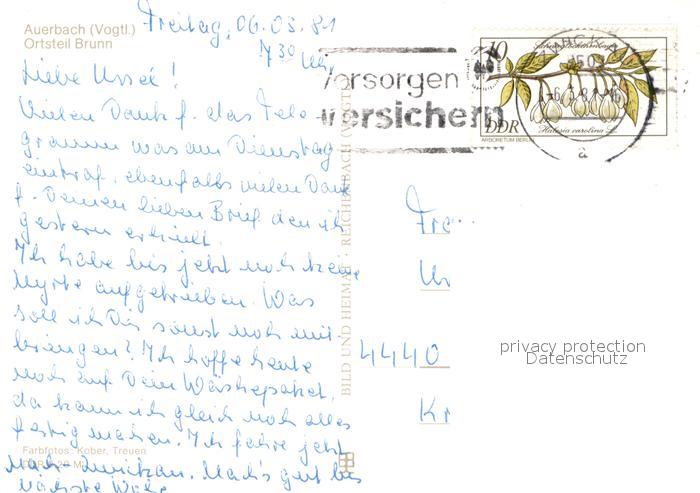 Auerbach (Vogtl.)
Ortsteil Brunn
Freitag, 06.03.81
7 30 Uhr
Liebe Ursel!
Vielen Dank f. das Tele-
gramm was am Dienstag
eintraf, ebenfalls vielen Dank
f. Deinen lieben Brief den ich
gestern erhielt.
Ich habe bis jetzt noch keine
Myrte aufgetrieben. Was
soll ich Dir sonst noch mit-
bringen? Ich hoffe heute
noch auf Dein Wäschepaket,
da kann ich gleich noch alles
fertig machen. Ich fahre jetzt
nach Zwickau. Mach's gut bis
nächste Woche
Farbfotos: Kober, Treuen
BILD UND HEIMAT · REICHENBACH (VOGTL)
Vorsorgen
versichern
10
DDR
Halesia carolina L.
ARBORETUM BERLIN
a
Fra
Ur
4440
Kr
privacy protection
Datenschutz